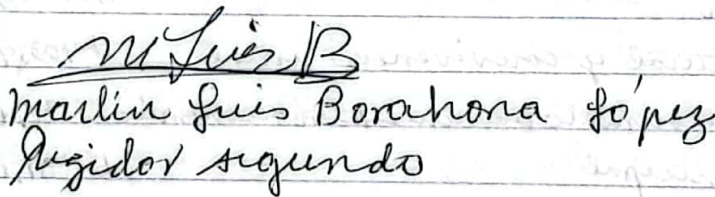 M Luis B
Marlin Luis Borahona López
Regidor segundo